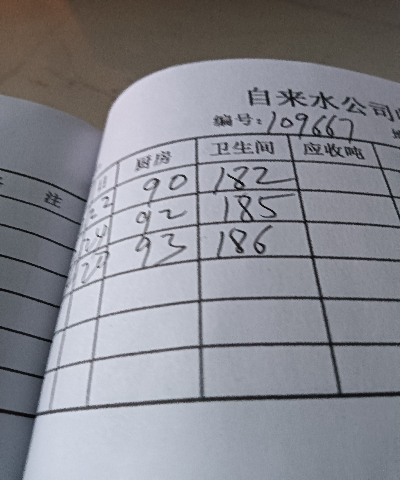 自来水公司
编号:109667
注 日 厨房 卫生间 应收吨
22 90 182
24 92 185
29 93 186